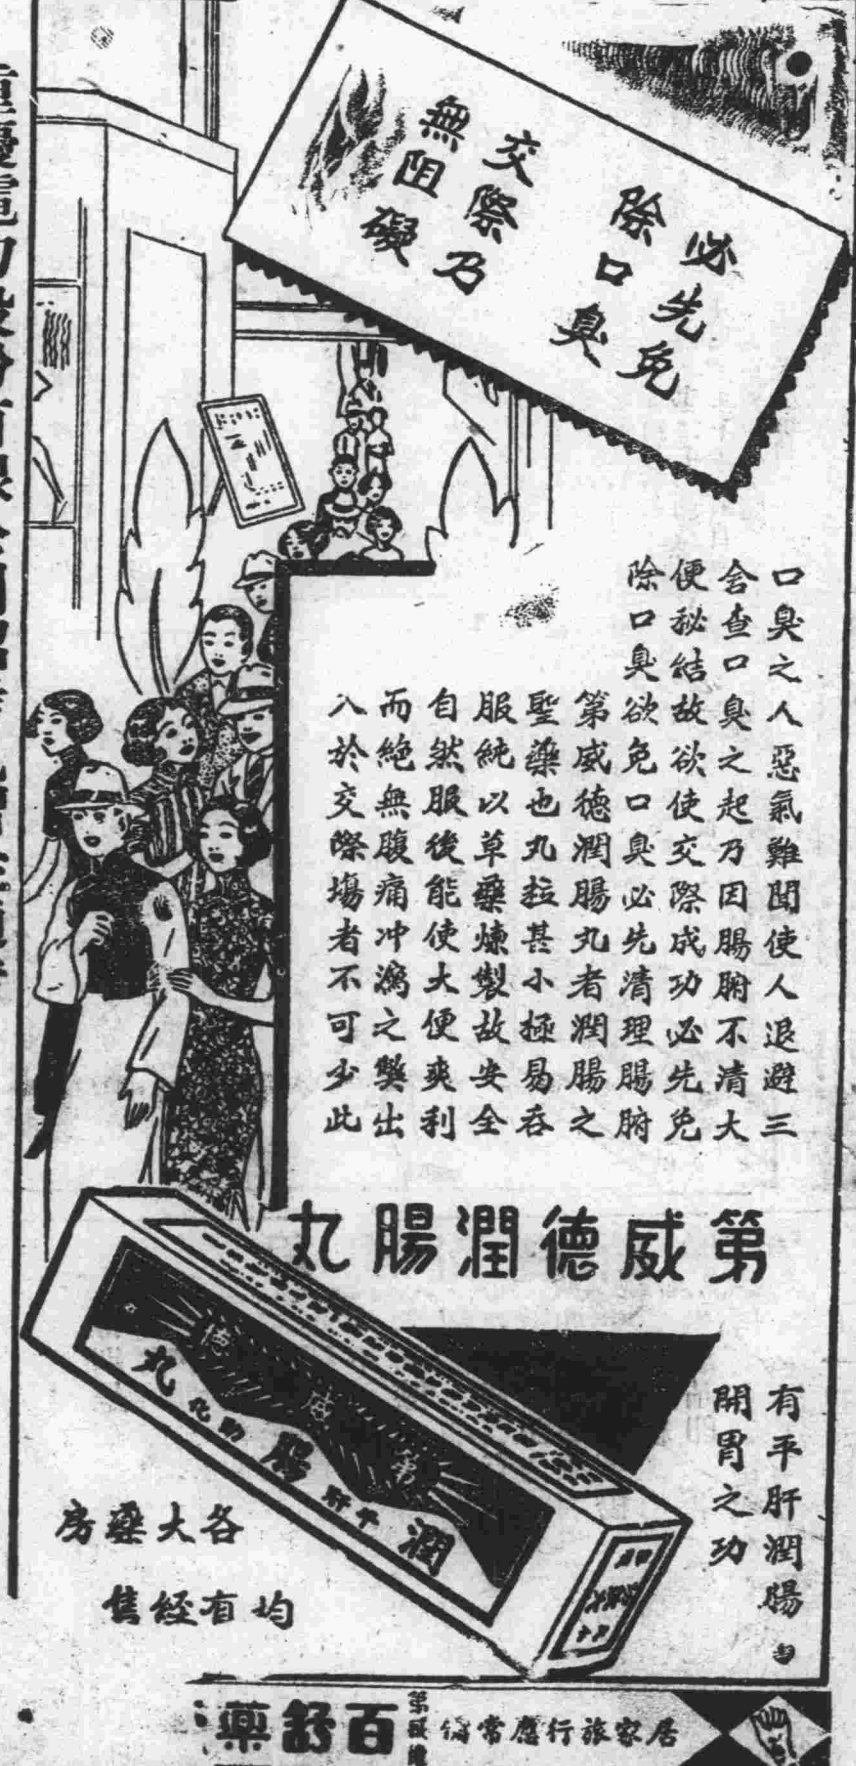 必先免
除口臭
交際乃
無阻礙
口臭之人惡氣難聞使人退避三
舍查口臭之起乃因腸腑不清大
便秘結故欲使交際成功必先免
除口臭欲免口臭必先清理腸腑
第威德潤腸丸者潤腸之
聖藥也丸粒甚小極易吞
服純以草藥煉製故安全
自然服後能使大便爽利
而絕無腹痛冲瀉之弊出
入於交際場者不可少此
第威德潤腸丸
有平肝潤腸
開胃之功
第威德
潤腸丸
平肝
助化
各大藥房
均有經售
居家旅行應常備
第威德
百舒藥